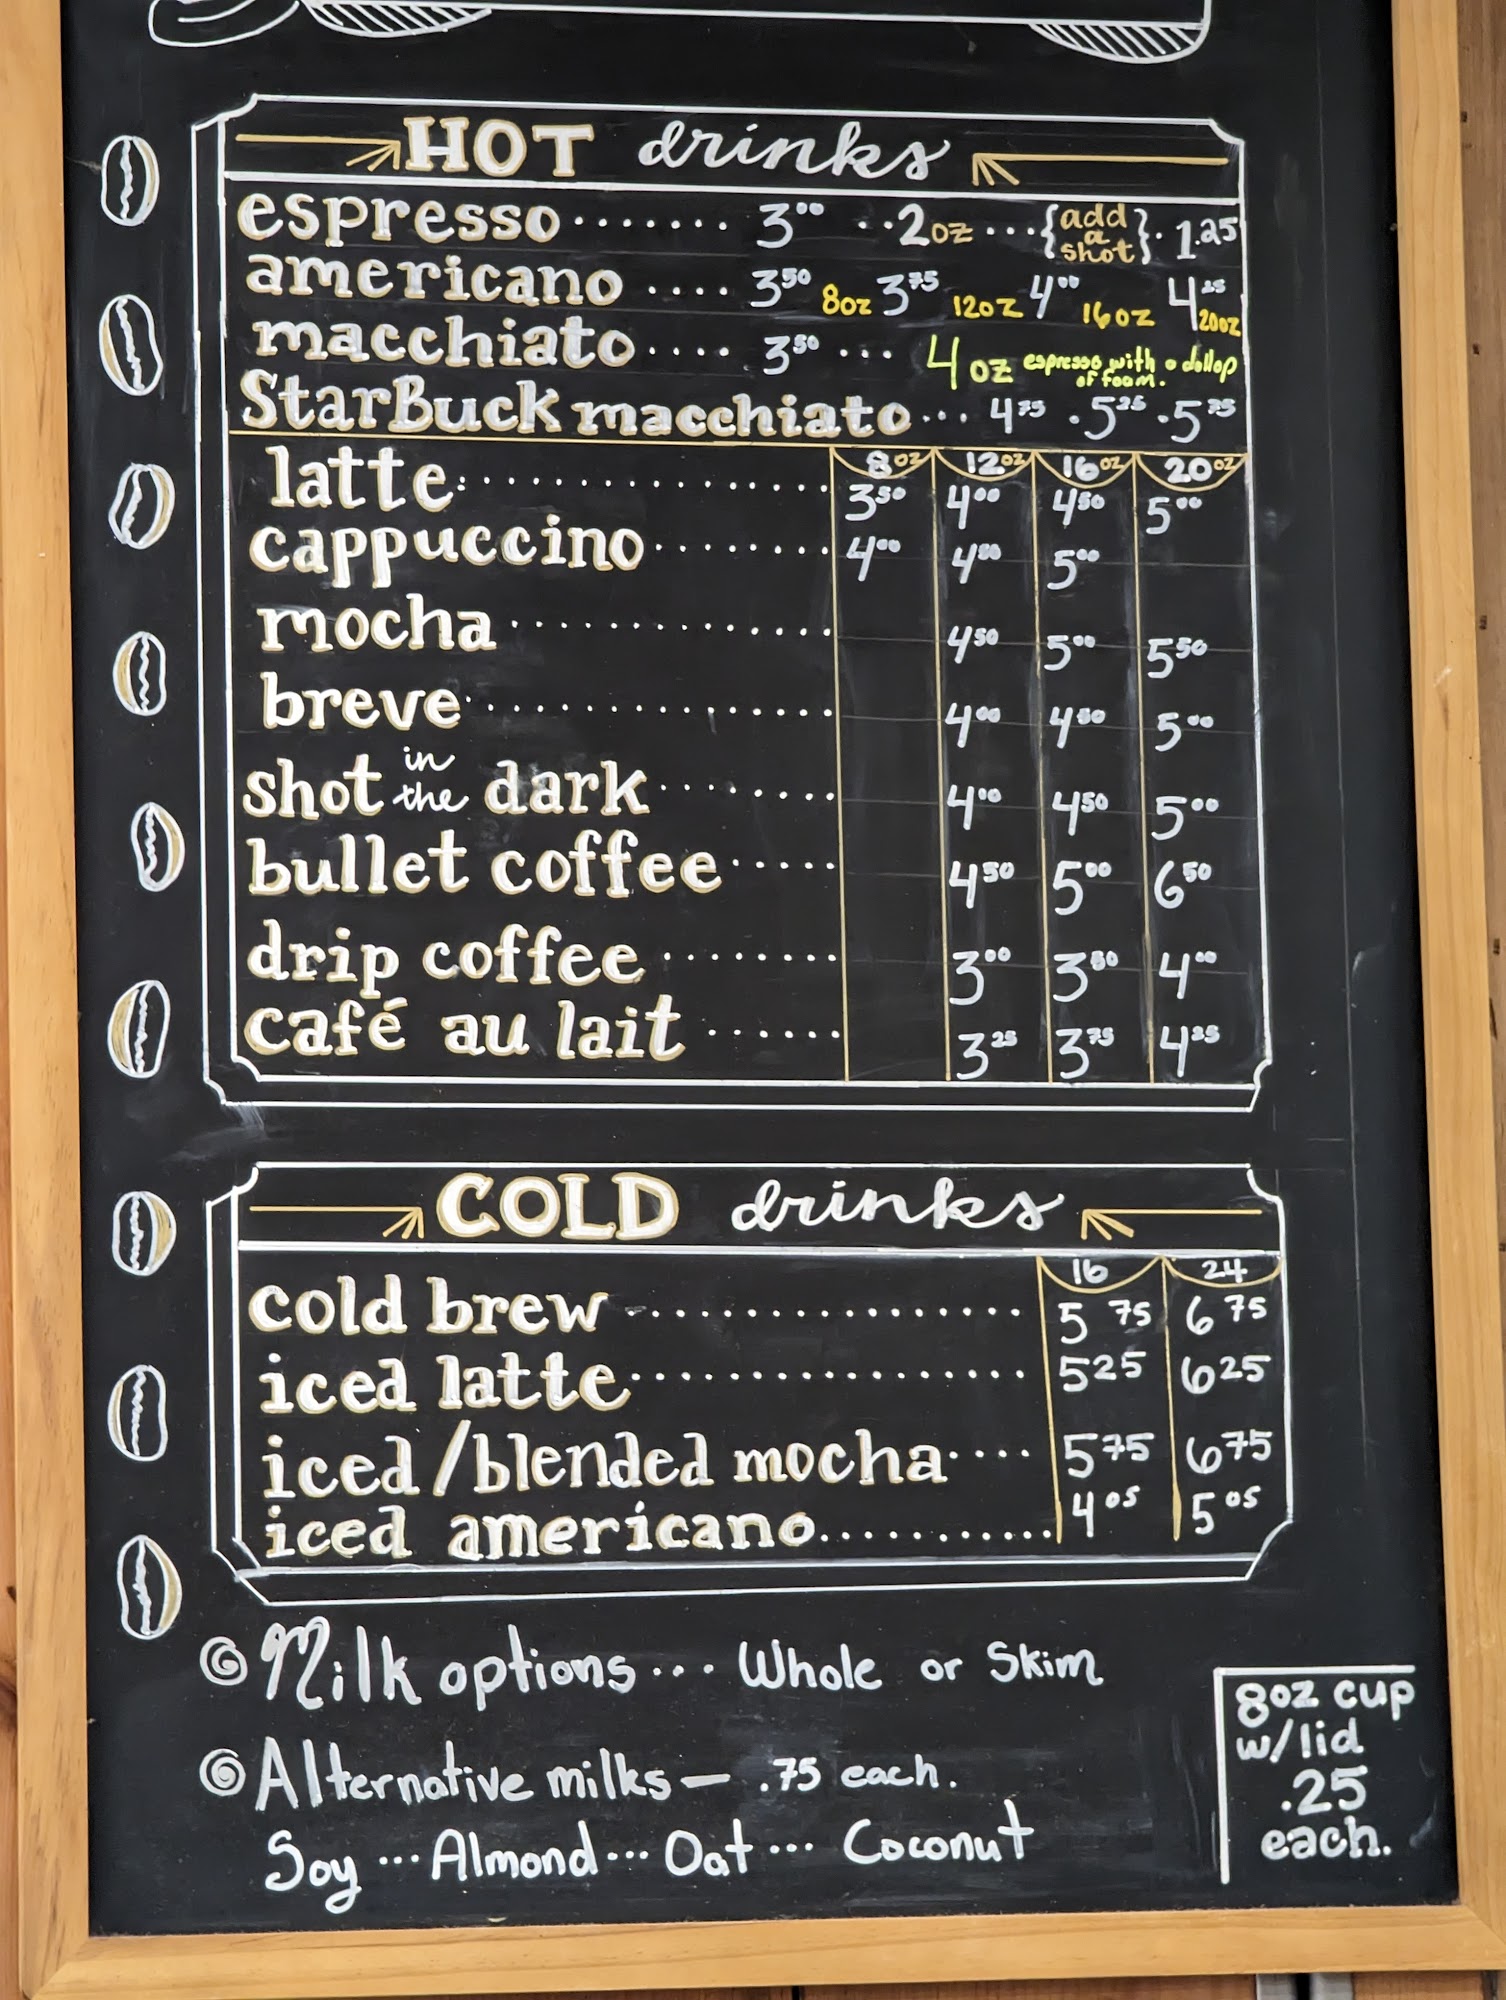 HOT drinks
espresso ....... 3⁰⁰ ..2oz ...{add a shot}. 1.25
americano .... 3⁵⁰ 8oz 3⁷⁵ 12oz 4⁰⁰ 16oz 4²⁵ 20oz
macchiato .... 3⁵⁰ ... 4oz espresso with a dollop of foam.
StarBuck macchiato... 4⁷⁵ .5²⁵ .5⁷⁵
8oz 12oz 16oz 20oz
latte................ 3⁵⁰ 4⁰⁰ 4⁵⁰ 5⁰⁰
cappuccino......... 4⁰⁰ 4⁵⁰ 5⁰⁰
mocha .............. 4⁵⁰ 5⁰⁰ 5⁵⁰
breve................ 4⁰⁰ 4⁵⁰ 5⁰⁰
shot in the dark........ 4⁰⁰ 4⁵⁰ 5⁰⁰
bullet coffee..... 4⁵⁰ 5⁰⁰ 6⁵⁰
drip coffee ........ 3⁰⁰ 3⁵⁰ 4⁰⁰
café au lait ...... 3²⁵ 3⁷⁵ 4²⁵
COLD drinks
16 24
cold brew ................. 5 75 6 75
iced latte................. 5 25 6 25
iced/blended mocha.... 5 75 6 75
iced americano........... 4 05 5 05
Milk options ... Whole or Skim
Alternative milks — .75 each.
Soy ... Almond ... Oat ... Coconut
8oz cup
w/lid
.25
each.